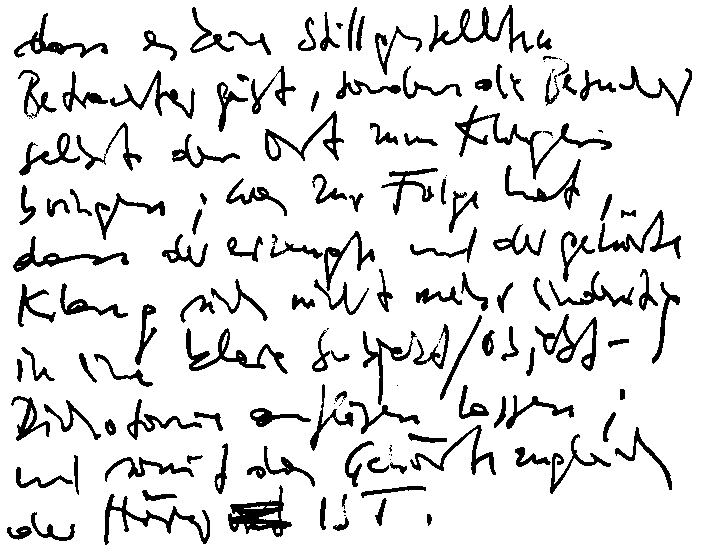 dass es keine stillgestellten
Betrachter gibt, sondern die Besucher
selbst den Ort zum Klingen
bringen; was zur Folge hat,
dass der erzeugte und der gehörte
Klang sich nicht mehr eindeutig
in eine klare Subjekt/Objekt-
Dichotomie auflösen lassen;
und somit das Gehörte zugleich
der Hörer IST.